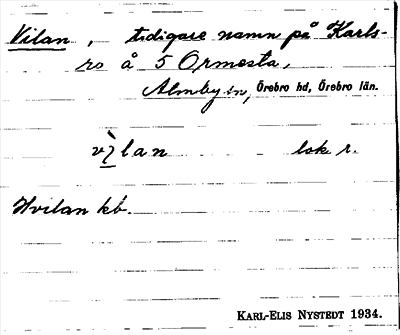 Vilan, tidigare namn på Karls-
ro å 5 Ormesta,
Almby sn, Örebro hd, Örebro län.
lok r.
Hvilan kb.
KARL-ELIS NYSTEDT 1934.